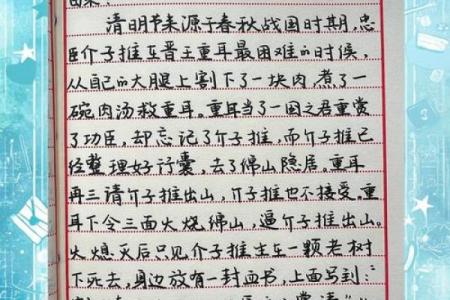 清明节来源于春秋战国时期,忠
臣介子推在晋王重耳最困难的时候,
从自己的大腿上割下了一块肉,煮了一
碗肉汤救重耳。重耳当了一国之君重赏
了功臣,却忘记了介子推,而介子推已
经整理好行囊,去了绵山隐居。重耳
再三请介子推出山,介子推也不接受。重
耳下令三面火烧绵山,逼介子推出山。
火熄灭后只见介子推坐在一颗老树
下死去,身边放有一封血书,上面写到: